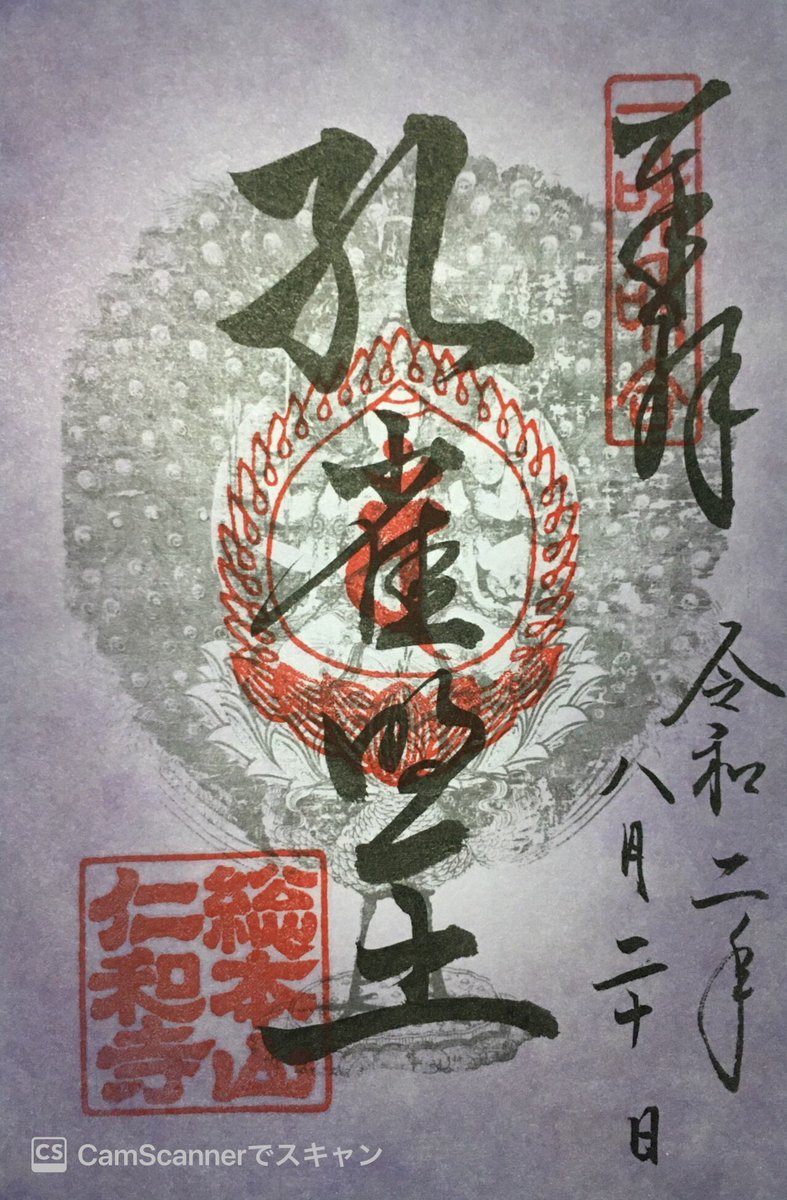 奉拝
令和二年
八月二十日
孔雀明王
総本山
仁和寺
CS CamScannerでスキャン